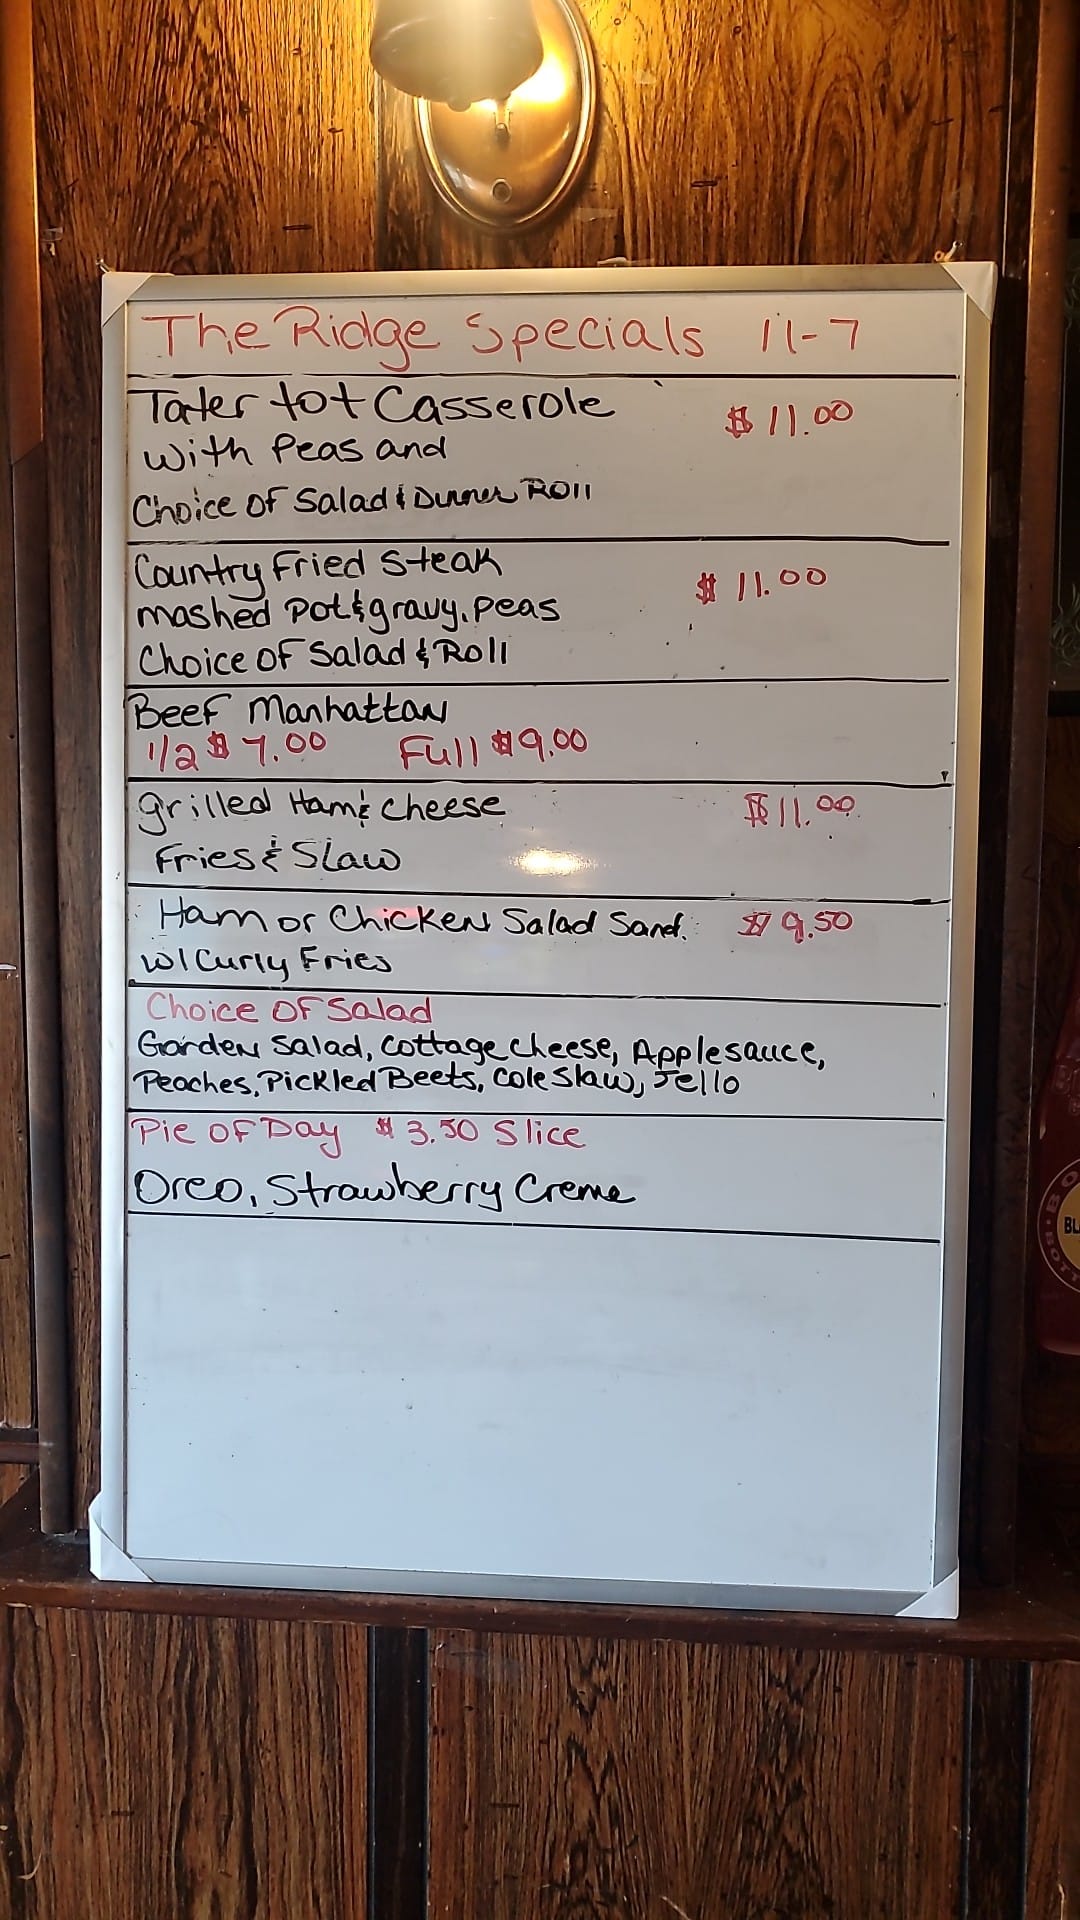 The Ridge Specials 11-7
Tater tot Casserole $11.00
with Peas and
Choice of Salad & Dinner Roll
Country Fried Steak $11.00
mashed Pot & gravy, Peas
Choice of Salad & Roll
Beef Manhattan
1/2 $7.00 Full $9.00
grilled Ham & cheese $11.00
Fries & Slaw
Ham or Chicken Salad Sand. $9.50
w/ Curly Fries
Choice of Salad
Garden Salad, Cottage cheese, Applesauce,
Peaches, Pickled Beets, Cole Slaw, Jello
Pie of Day $3.50 Slice
Oreo, Strawberry Creme